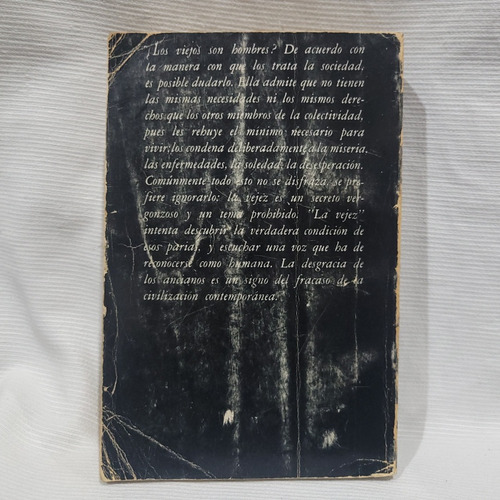 ¿Los viejos son hombres? De acuerdo con
la manera con que los trata la sociedad,
es posible dudarlo. Ella admite que no tienen
las mismas necesidades ni los mismos dere-
chos que los otros miembros de la colectividad,
pues les rehuye el mínimo necesario para
vivir; los condena deliberadamente a la miseria,
las enfermedades, la soledad, la desesperación.
Comúnmente todo esto no se disfraza, se pre-
fiere ignorarlo: la vejez es un secreto ver-
gonzoso y un tema prohibido. "La vejez"
intenta descubrir la verdadera condición de
esos parias, y escuchar una voz que ha de
reconocerse como humana. La desgracia de
los ancianos es un signo del fracaso de la
civilización contemporánea.